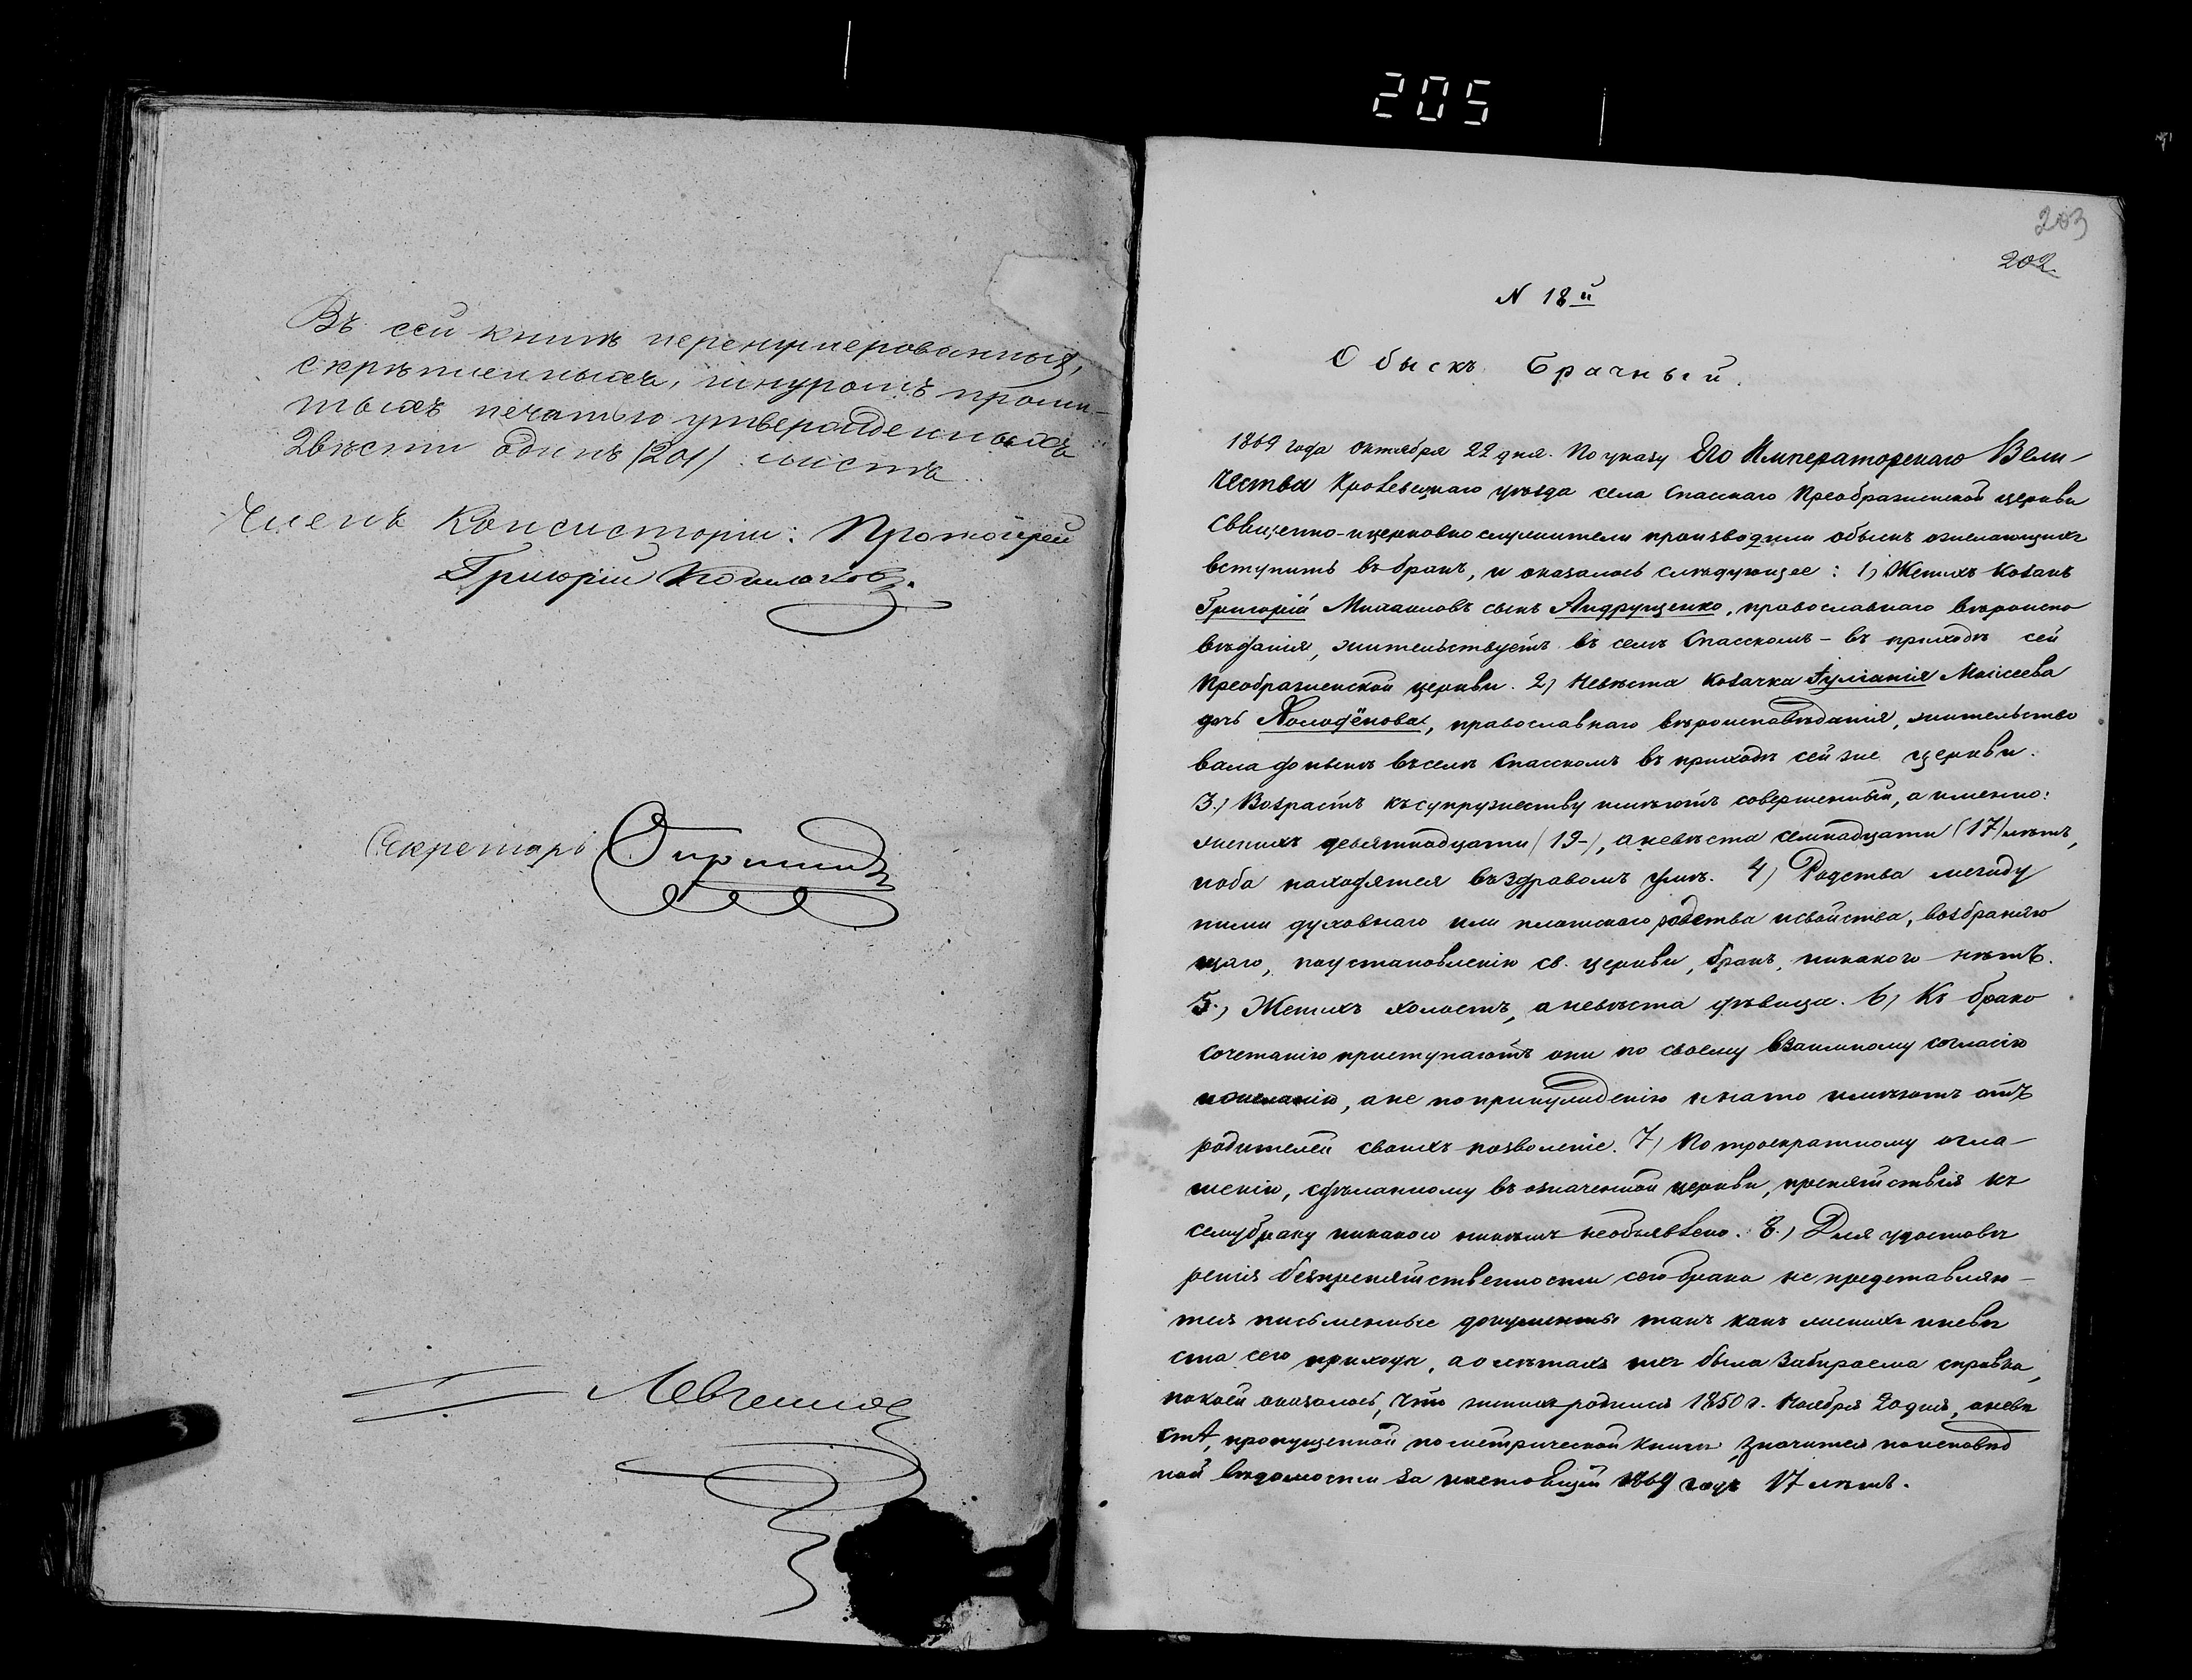 205
Въ сей книгѣ перенумерованныхъ,
скрѣпленныхъ, шнуромъ проши-
тыхъ печатью утвержденныхъ
Двѣсти одинъ (201) листъ.
Членъ Консисторіи: Протоіерей
Григорій
Секретарь
203
202
N 18й
Обыскъ Брачный.
1869 года октября 22 дня. По указу Его Императорскаго Вели-
чества Кролевецкаго уѣзда села Спасскаго Преображенской церкви
священно-и церковнослужители производили обыскъ о желающихъ
вступить въ бракъ, и оказалось слѣдующее: 1) Женихъ козакъ
Григорій Михаиловъ сынъ Андрущенко, православнаго вѣроиспо
вѣданія, жительствуетъ въ селѣ Спасскомъ – въ приходѣ сей
Преображенской церкви. 2) Невѣста козачка Іуліанія Моисеева
дочь Холодёнова, православнаго вѣроисповѣданія, жительство
вала до нынѣ въ селѣ Спасскомъ въ приходѣ сей же церкви.
3.) Возрастъ къ супружеству имѣютъ совершенный, а именно:
женихъ девятнадцати (19-), а невѣста семнадцати (17) лѣтъ,
и оба находятся въ здравомъ умѣ. 4) Родства между
ними духовнаго или плотскаго родства и свойства, возбраняю
щаго, по установленію св. церкви, бракъ, никакого нѣтъ.
5.) Женихъ холостъ, а невѣста дѣвица. 6) Къ брако
сочетанію приступаютъ они по своему взаимному согласію
и желанію, а не по принужденію и на то имѣютъ отъ
родителей своихъ позволеніе. 7) По троекратному огла-
шенію, сдѣланному въ означенной церкви, препятствія къ
сему браку никакого никѣмъ не объявлено. 8.) Для удостовѣ
ренія безпрепятственности сего брака не представляю-
тся письменные документы такъ какъ женихъ и невѣ
ста сего прихода, а о лѣтахъ ихъ была забираема справка,
по коей оказалось, что женихъ родился 1850 г. Ноября 20 дня, а невѣ
ста, пропущенной по метрической книгѣ, значится по исповѣд
ной вѣдомости за настоящій 1869 годъ 17 лѣтъ.